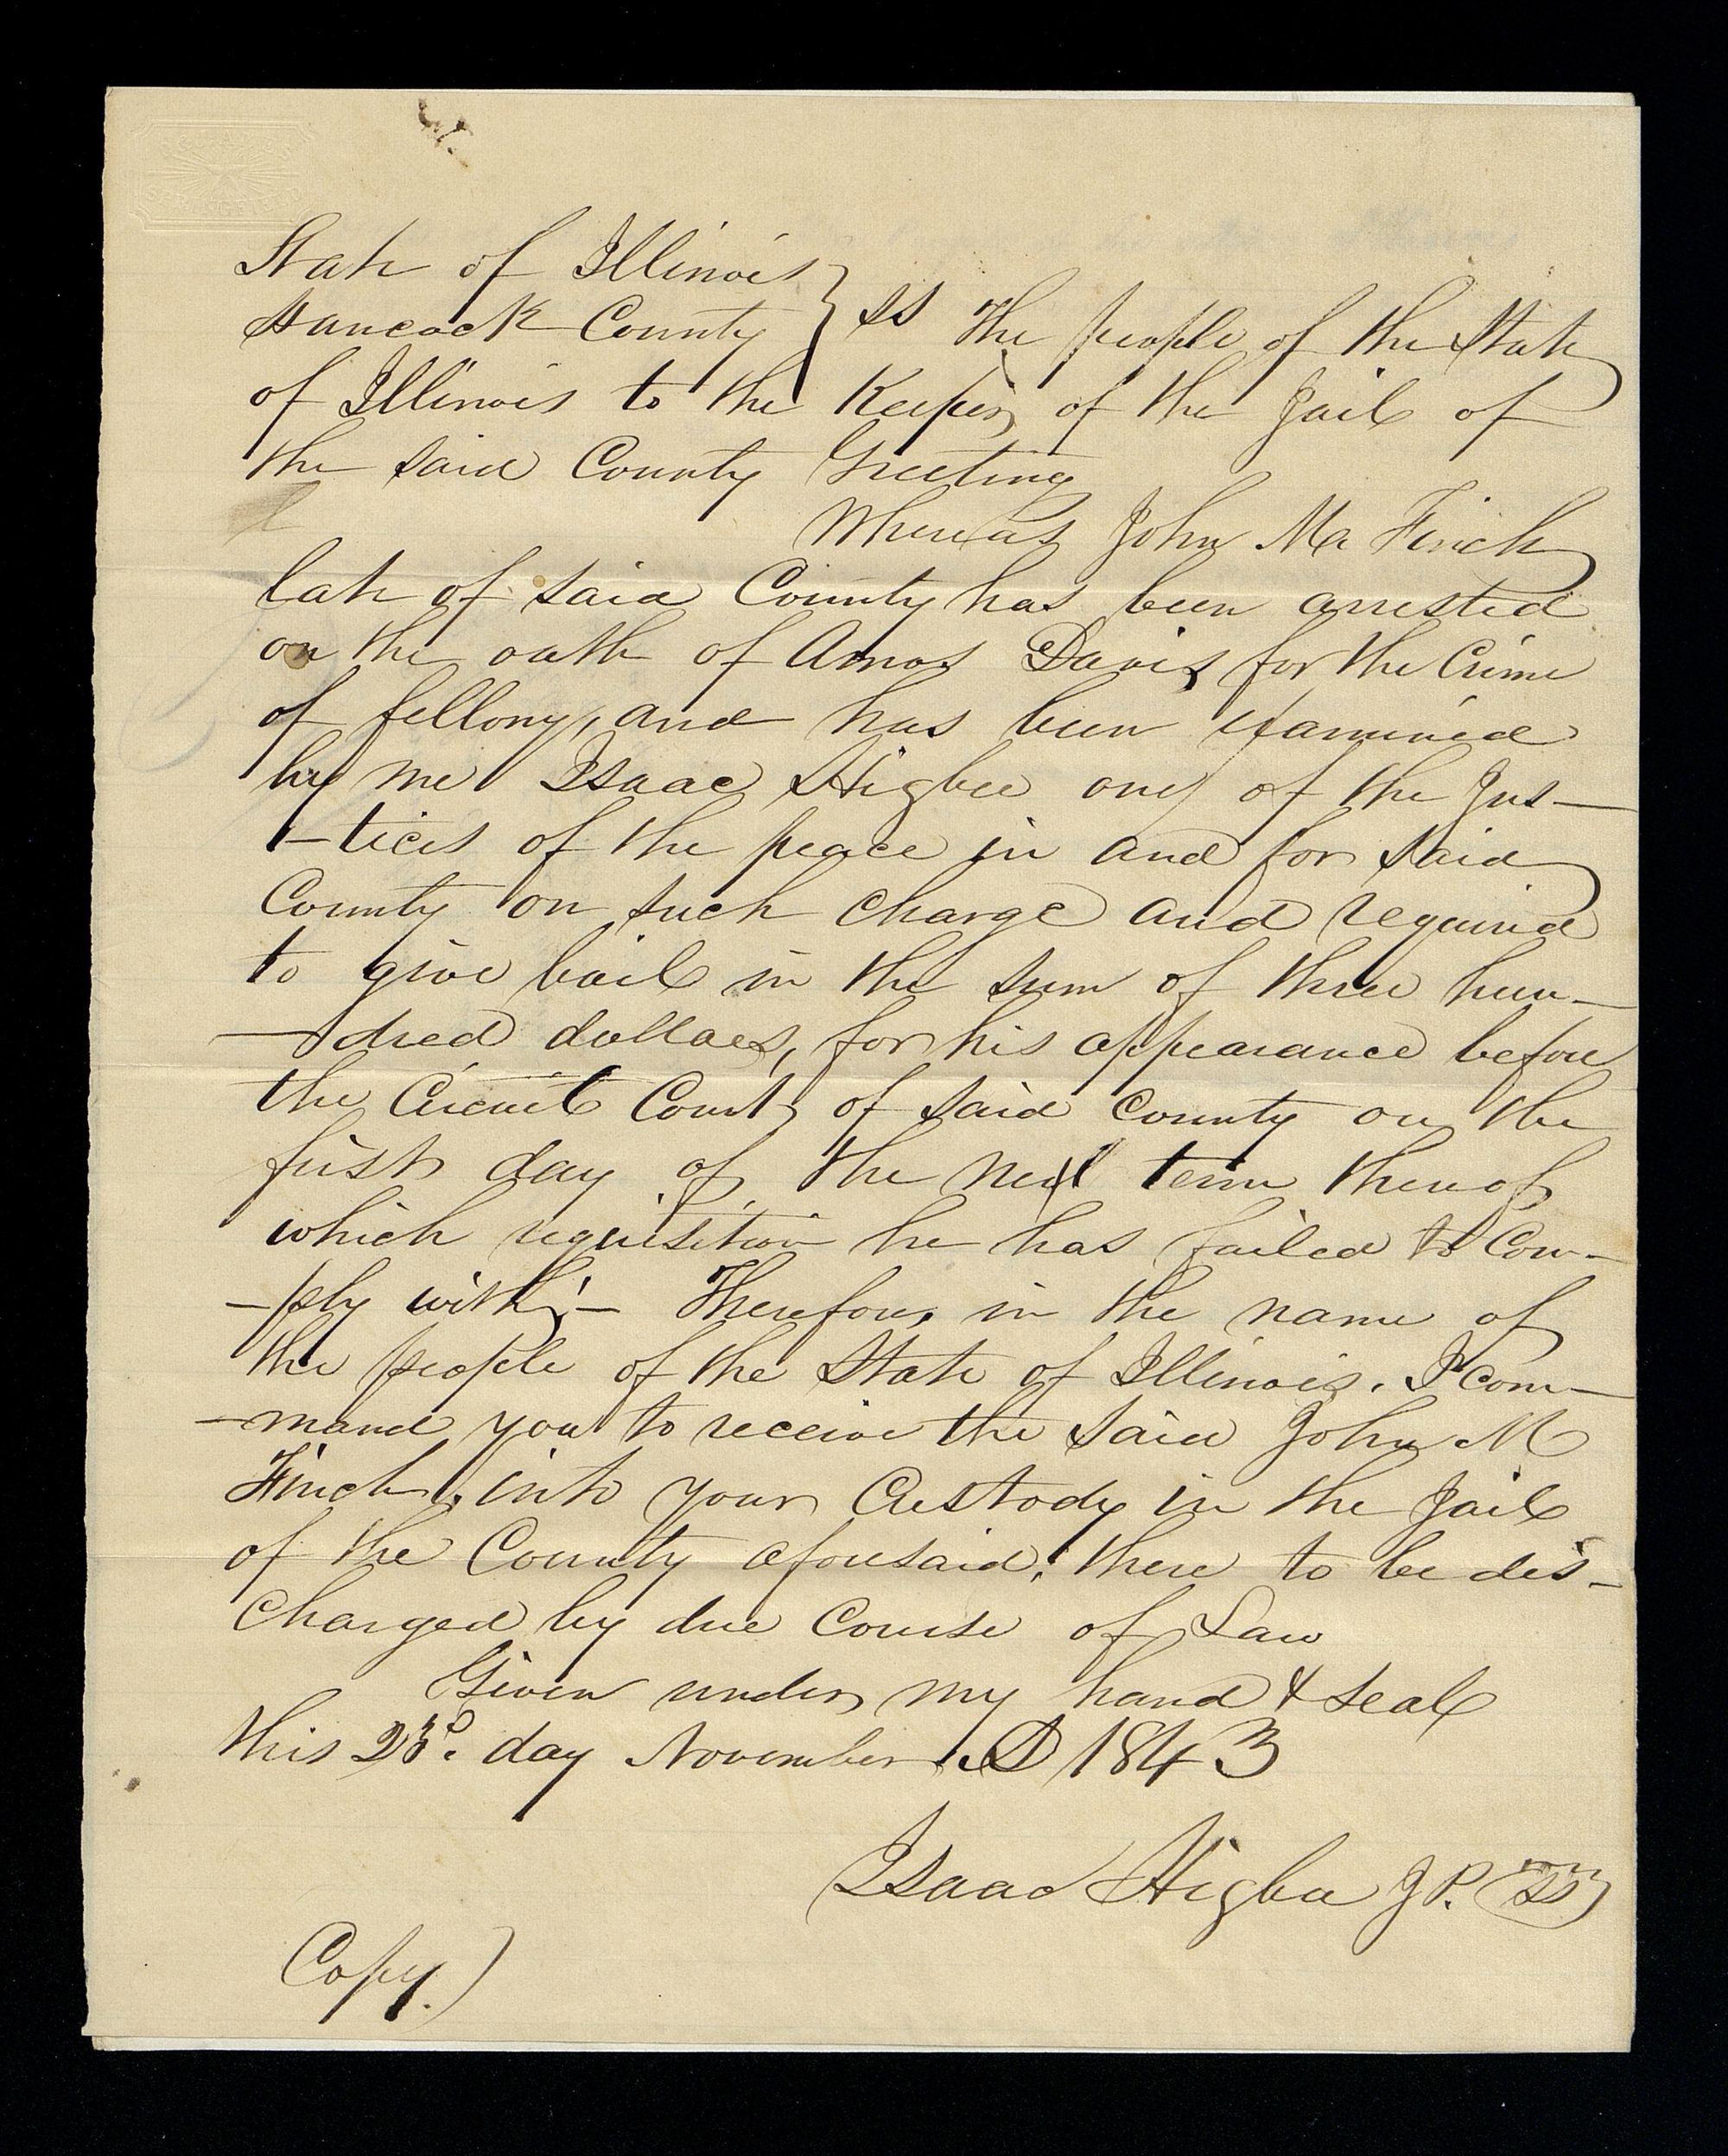 State of Illinois }
Hancock County } SS The people of the State
of Illinois to the Keeper of the Jail of
the said County Greeting
Whereas John M Finch
late of said County has been arrested
on the oath of Amos Davis for the Crime
of fellony, and has been examined
by me Isaac Higbee one of the Jus-
-tices of the peace in and for said
County on such charge and required
to give bail in the sum of three hun-
-dred dollars, for his appearance before
the Circuit Court of said County on the
first day of the next term thereof
which requisition he has failed to Com-
-ply with;- Therefore, in the name of
the people of the State of Illinois. I com-
-mand you to receive the said John M
Finch, into your Custody in the Jail
of the County aforesaid; there to be dis-
charged by due Course of Law
Given under my hand & seal
this 23d. day November AD 1843
Isaac Higbee J P.
Copy.)